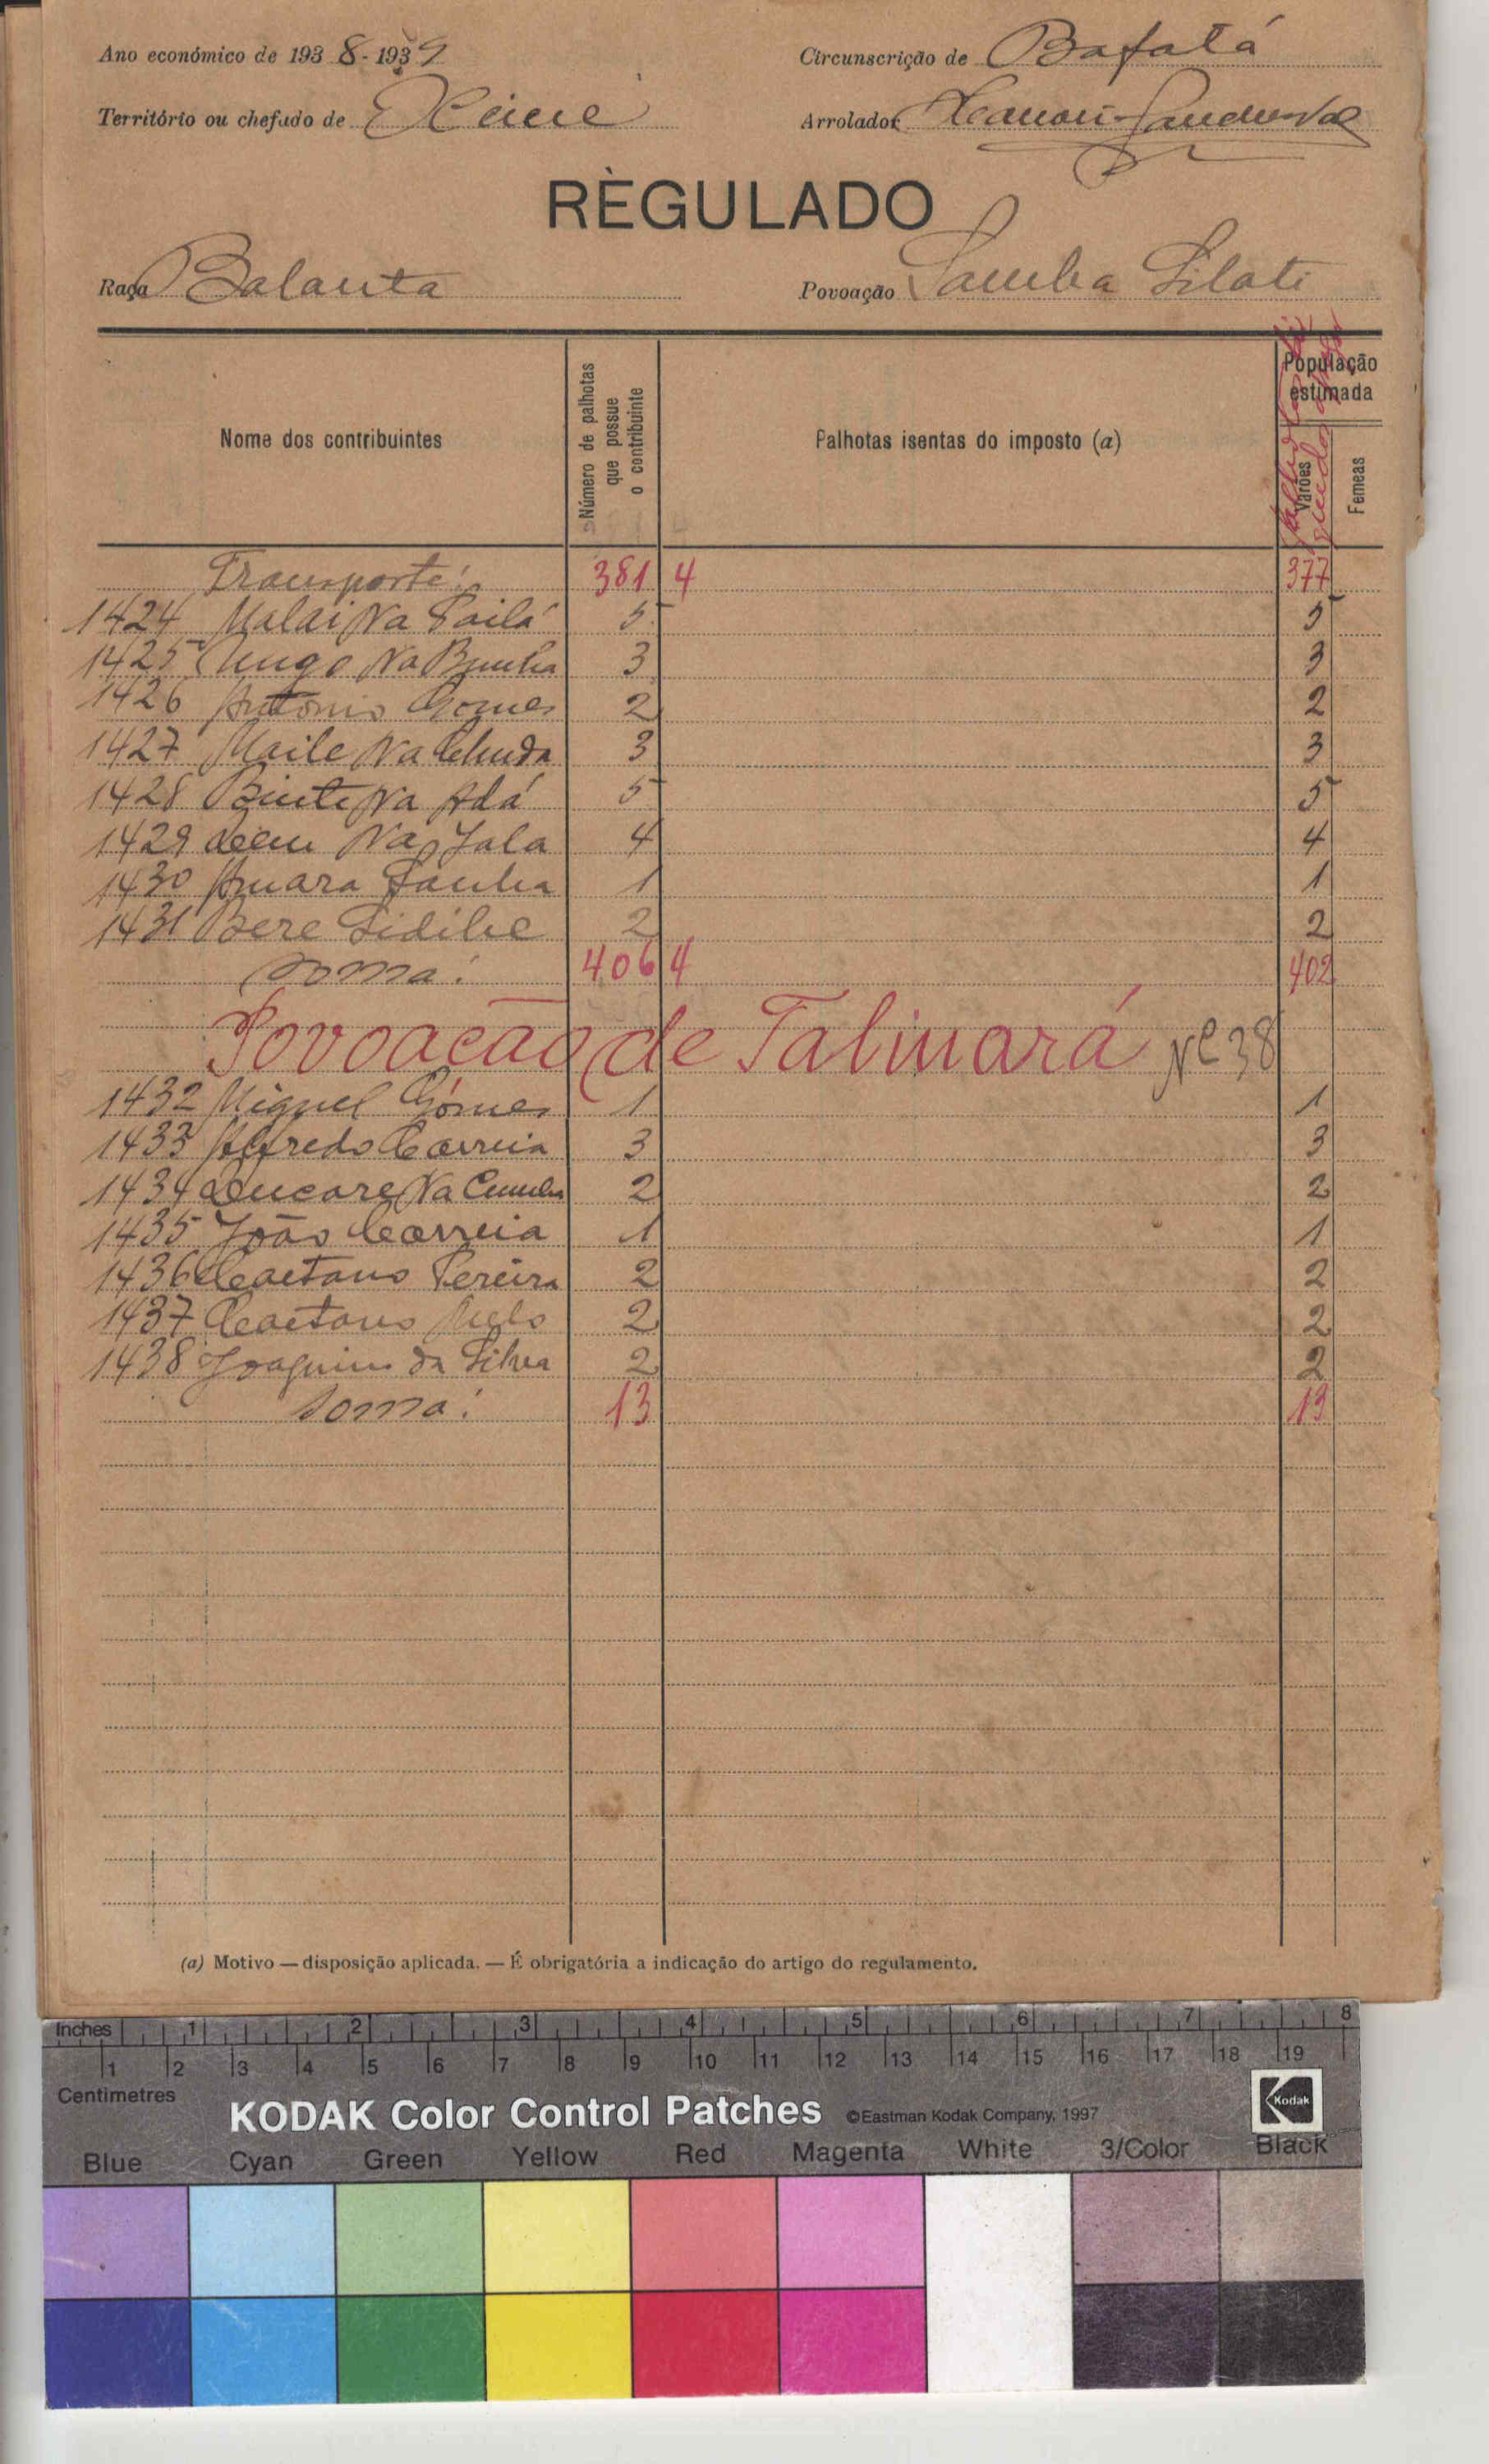 Ano económico de 1938-1939
Circunscrição de Bafatá
Território ou chefado de Xime
Arrolador
RÈGULADO
Raça Balanta
Povoação Samba Silati
Nome dos contribuintes
Número de palhotas que possue o contribuinte
Palhotas isentas do imposto (a)
População estimada
Varões
Femeas
Transporte: 381 4 377
1424 Malai Na 5 5
1425 Na 3 3
1426 António Gomes 2 2
1427 Maile Na 3 3
1428 Binte Na Adá 5 5
1429 Na Iala 4 4
1430 Amara Sanha 1 1
1431 Bere Sidibe 2 2
Soma: 406 4 402
Povoação de Talinará Nº 38
1432 Miguel Gómes 1 1
1433 Alfredo Correia 3 3
1434 Na 2 2
1435 João Correia 1 1
1436 Caetano Pereira 2 2
1437 Caetano Melo 2 2
1438 Joaquim da Silva 2 2
Soma: 13 13
(a) Motivo — disposição aplicada. — É obrigatória a indicação do artigo do regulamento.
Inches 1 2 3 4 5 6 7 8
1 2 3 4 5 6 7 8 9 10 11 12 13 14 15 16 17 18 19
Centimetres
KODAK Color Control Patches ©Eastman Kodak Company, 1997 Kodak
Blue Cyan Green Yellow Red Magenta White 3/Color Black